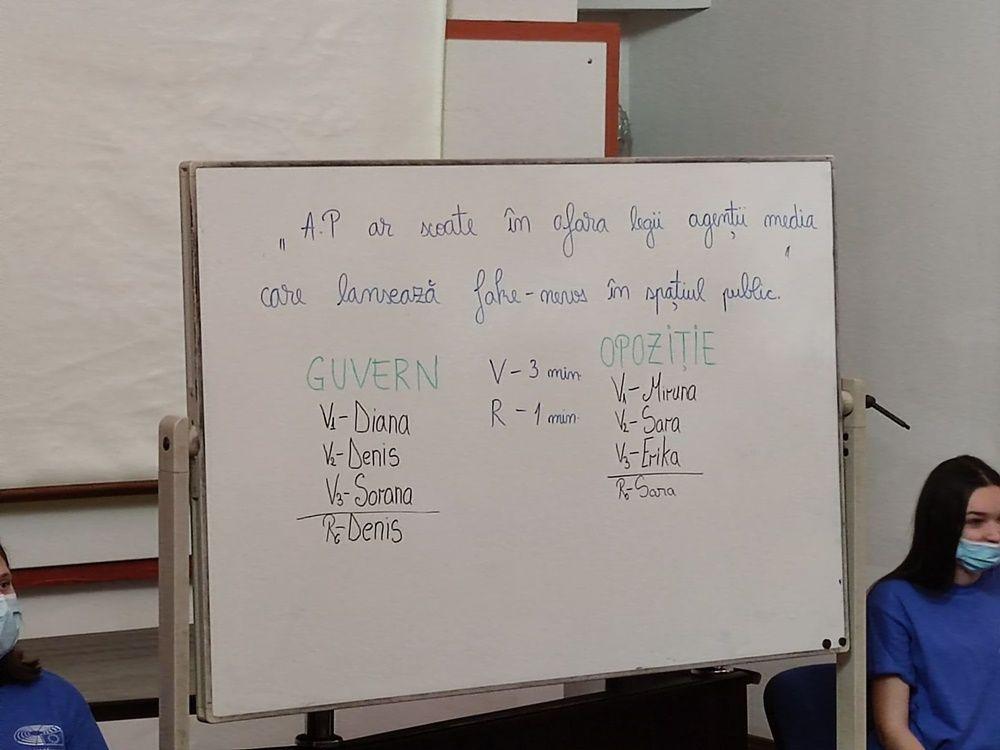 „A.P ar scoate în afara legii agenții media
care lansează fake-news în spațiul public.”
GUVERN
V1-Diana
V2-Denis
V3-Sorana
R-Denis
V-3 min
R-1 min
OPOZIȚIE
V1-Miruna
V2-Sara
V3-Erika
R-Sara